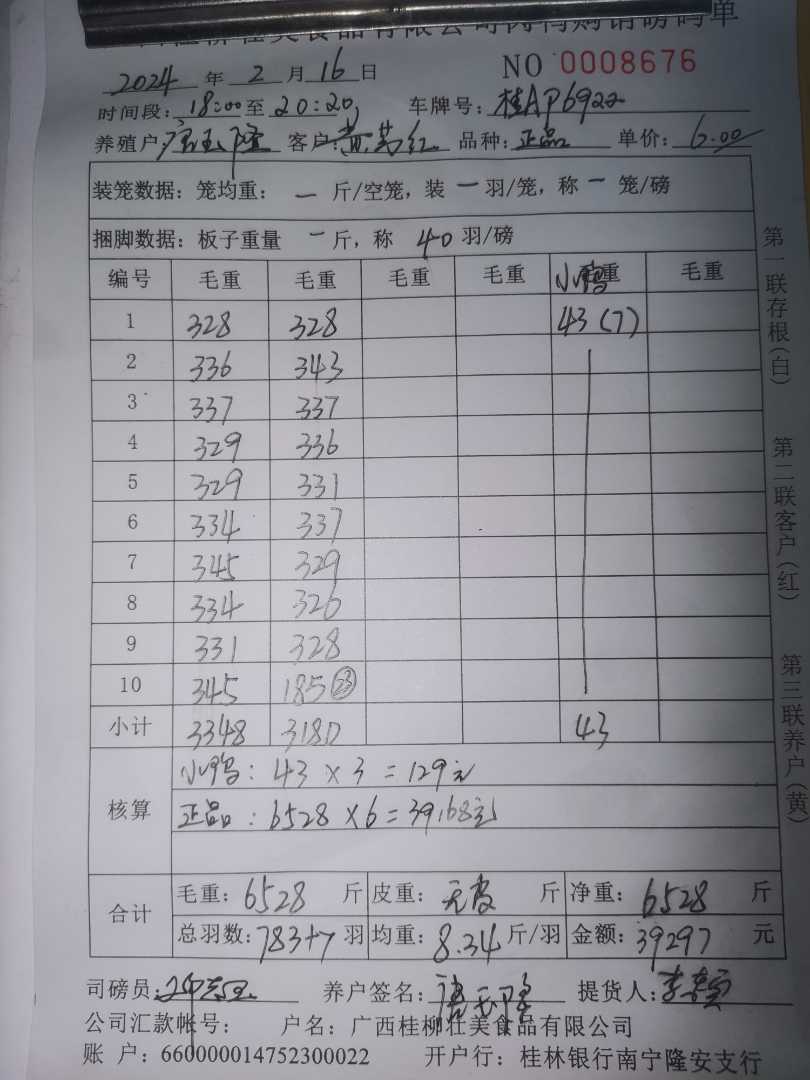 食品有限公司肉鸭购销磅码单
2024 年 2 月 16 日 NO 0008676
时间段: 18:00 至 20:20 车牌号: 桂AP6922
养殖户: 客户: 品种: 正品 单价: 6.00
装笼数据: 笼均重: 一 斤/空笼, 装 一 羽/笼, 称 一 笼/磅
捆脚数据: 板子重量 一 斤, 称 40 羽/磅
编号 毛重 毛重 毛重 毛重 小鸭 重 毛重
1 328 328 43(7)
2 336 343
3 337 337
4 329 336
5 329 331
6 334 337
7 345 329
8 334 326
9 331 328
10 345 185 (23)
小计 3348 3180 43
核算 小鸭: 43 × 3 = 129元
正品: 6528 × 6 = 39168元
合计 毛重: 6528 斤 皮重: 无皮 斤 净重: 6528 斤
总羽数: 783+7 羽 均重: 8.34 斤/羽 金额: 39297 元
司磅员: 养户签名: 提货人:
公司汇款帐号: 户名: 广西桂柳壮美食品有限公司
账 户: 660000014752300022 开户行: 桂林银行南宁隆安支行
第一联存根(白) 第二联客户(红) 第三联养户(黄)